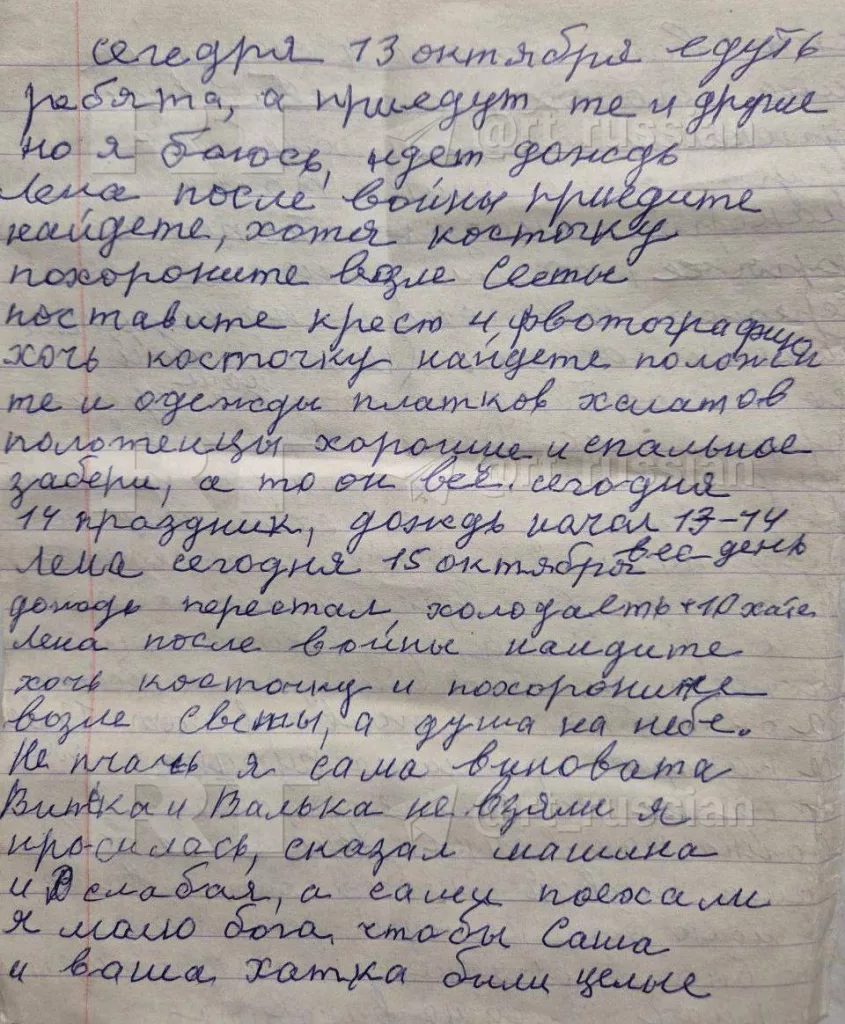 сегедря 13 октября едуть
ребята, а приедут те и другие
но я боюсь, идет дождь
Лена после войны приедите
найдете, хотя косточку
похороните возле Светы
поставите крест и фвотографию
хочь косточку найдете положи
те и одежды платков халатов
полотенцы хорошие и спальное
забери, а то он всё. сегодня
14 праздник, дождь начал 13-14
Лена сегодня 15 октября вес день
дождь перестал, холодаеть +10 хате
Лена после войны найдите
хочь косточку и похороните
возле Светы, а душа на небе.
Не плачь я сама виновата
Витька и Валька не взяли я
просилась, сказал машина
и слабая, а сами поехали
я малю бога, чтобы Саша
и ваша хатка были целые
RT @rt_russian
RT @rt_russian
RT @rt_russian